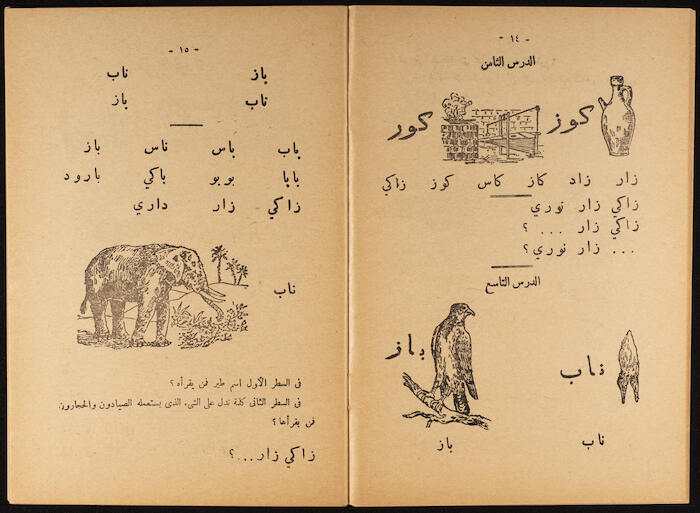 - ١٤ -
الدرس الثامن
كوز كور
زار زاد كاز كاس كوز زاكي
زاكي زار نوري
زاكي زار ... ؟
... زار نوري؟
الدرس التاسع
ناب باز
ناب باز
- ١٥ -
باز ناب
ناب باز
باب باس ناس باز
بابا بوبو باكي بارود
زاكي زار داري
ناب
فى السطر الأول اسم طير فمن يقرأه ؟
فى السطر الثانى كلمة تدل على الشىء الذى يستعمله الصيادون والحجارون
فمن يقرأها ؟
زاكي زار...؟